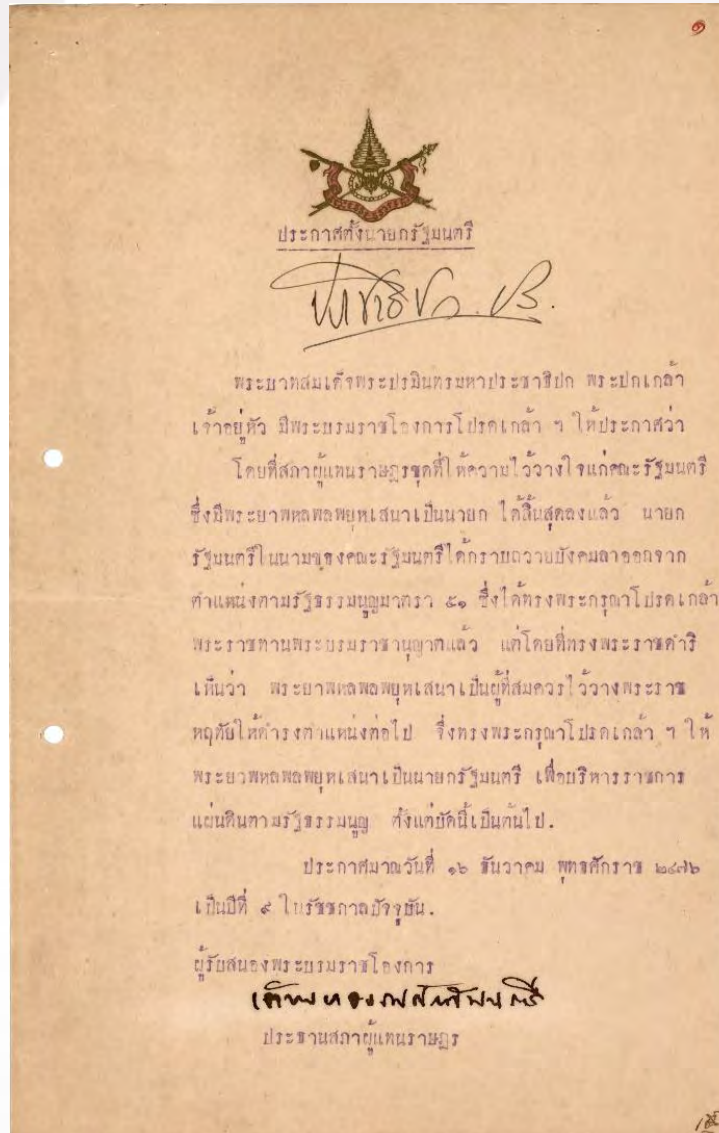 ๑
ประกาศตั้งนายกรัฐมนตรี
ประชาธิปก. ปร.
พระบาทสมเด็จพระปรมินทรมหาประชาธิปก พระปกเกล้า
เจ้าอยู่หัว มีพระบรมราชโองการโปรดเกล้า ฯ ให้ประกาศว่า
โดยที่สภาผู้แทนราษฎรชุดที่ให้ความไว้วางใจแก่คณะรัฐมนตรี
ซึ่งมีพระยาพหลพลพยุหเสนาเป็นนายก ได้สิ้นสุดลงแล้ว นายก
รัฐมนตรีในนามของคณะรัฐมนตรีได้กราบถวายบังคมลาออกจาก
ตำแหน่งตามรัฐธรรมนูญมาตรา ๕๑ ซึ่งได้ทรงพระกรุณาโปรดเกล้า
พระราชทานพระบรมราชานุญาตแล้ว แต่โดยที่ทรงพระราชดำริ
เห็นว่า พระยาพหลพลพยุหเสนาเป็นผู้ที่สมควรไว้วางพระราช
หฤทัยให้ดำรงตำแหน่งต่อไป จึ่งทรงพระกรุณาโปรดเกล้า ฯ ให้
พระยาพหลพลพยุหเสนาเป็นนายกรัฐมนตรี เพื่อบริหารราชการ
แผ่นดินตามรัฐธรรมนูญ ตั้งแต่บัดนี้เป็นต้นไป.
ประกาศมาณวันที่ ๑๖ ธันวาคม พุทธศักราช ๒๔๗๖
เป็นปีที่ ๙ ในรัชชกาลปัจจุบัน.
ผู้รับสนองพระบรมราชโองการ
ประธานสภาผู้แทนราษฎร